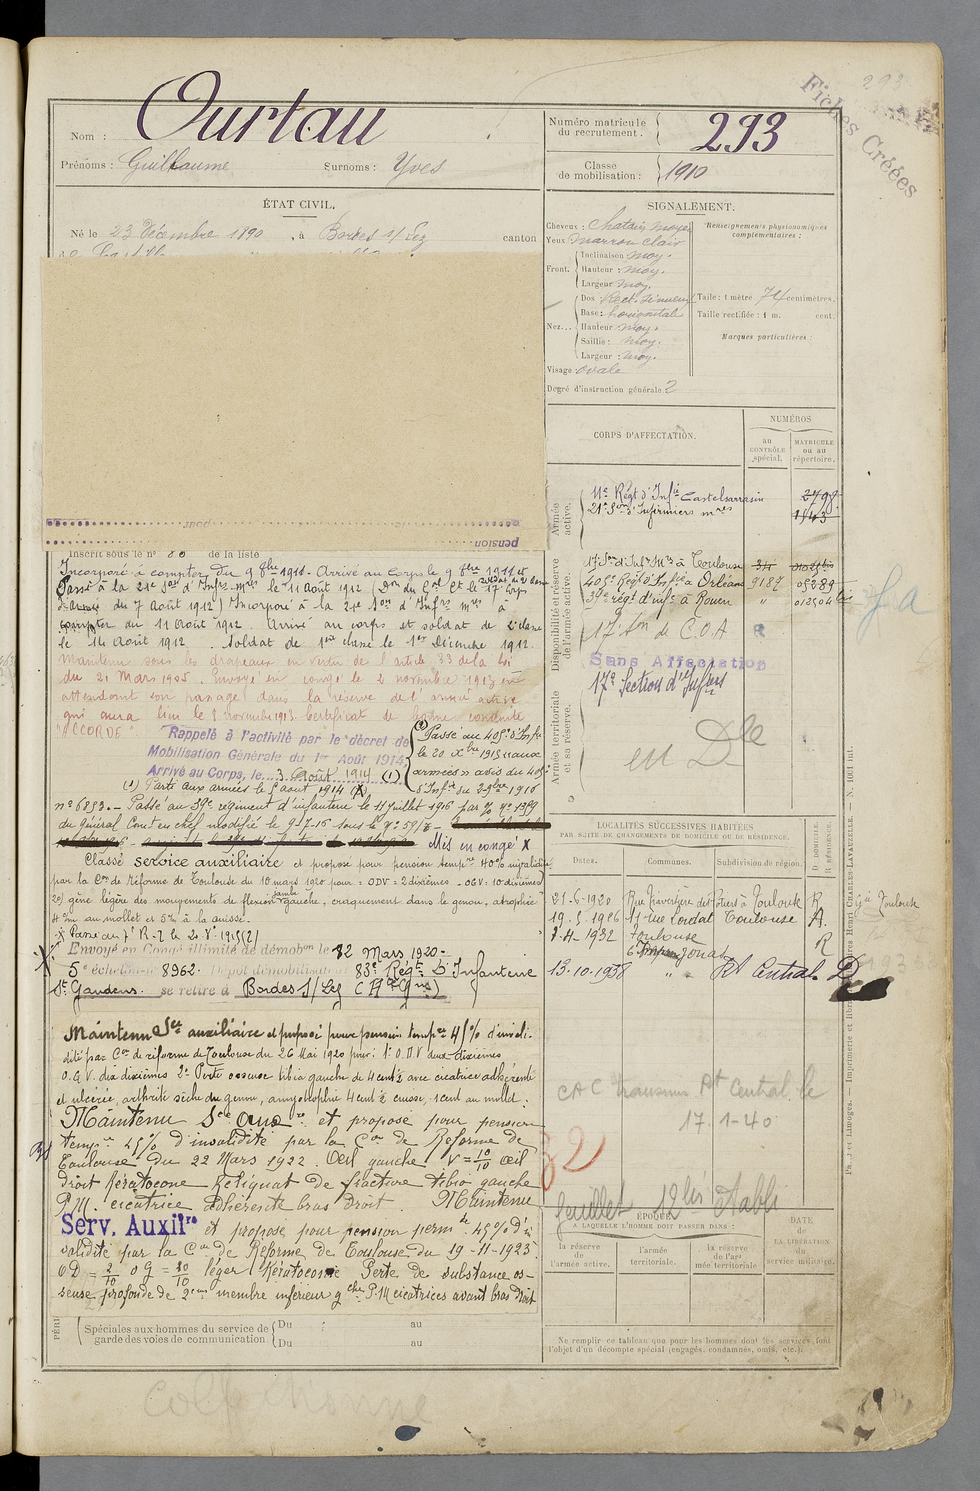 293
Fiches Créées
Nom : Ourtau
Prénoms : Guillaume Surnoms : Yves
Numéro matricule du recrutement. 293
Classe de mobilisation : 1910
ÉTAT CIVIL.
Né le 23 Décembre 1890, à Bordes s/ Lez canton
SIGNALEMENT.
Cheveux : Chatain moyen
Yeux marron clair
Front. Inclinaison moy.
Hauteur : moy.
Largeur moy.
Nez... Dos : Rect. sinueux
Base : horizontale
Hauteur moy.
Saillie : moy.
Largeur : moy.
Visage ovale
Degré d'instruction générale 2
Renseignements physionomiques complémentaires :
Taille : 1 mètre 74 centimètres.
Taille rectifiée : 1 m. cent.
Marques particulières :
CORPS D'AFFECTATION.
NUMÉROS
au CONTRÔLE spécial.
MATRICULE ou au répertoire.
Armée active.
11e Régt d'Infie Castelsarrasin 2798
21e Son d'Infirmiers mres 1943
Disponibilité et réserve de l'armée active.
17e Son d'Inf. Mres à Toulouse
405e Régt d'Infie à Orléans 9187 05989
39e régt d'infie à Rouen " 012504
17e Son de C.O.A R
Sans Affectation
17e Section d'Infirs
Armée territoriale et sa réserve.
en Dle
Inscrit sous le n° 80 de la liste
Incorporé à compter du 9 8bre 1911. Arrivé au Corps le 9 8bre 1911 et soldat de 2e classe
Passé à la 21e Son d'Infrs mres le 11 Août 1912 (Don du Gal Ct le 17e Corps
d'armée du 7 Août 1912) Incorporé à la 21e Son d'Infrs mres à
compter du 11 Août 1912. Arrivé au corps et soldat de 2e classe
le 14 Août 1912. Soldat de 1ere classe le 1er Décembre 1912.
Maintenu sous les drapeaux en vertu de l'article 33 de la loi
du 21 Mars 1905. Envoyé en congé le 2 novembre 1913 en
attendant son passage dans la réserve de l'armée active
qui aura lieu le 8 novembre 1913. Certificat de bonne conduite
"ACCORDÉ"
Rappelé à l'activité par le décret de
Mobilisation Générale du 1er Août 1914
Arrivé au Corps, le 3 Août 1914 (1)
Passé au 405e d'Infie
le 20 Xbre 1915 «aux
armées» avis du 405e
d'Infie du 29 9bre 1916
(1) Parti aux armées le 5 août 1914 (X)
n° 6893. — Passé au 39e régiment d'infanterie le 11 juillet 1916 par % n° 1359
du général Comt en chef modifié le 9-7-16 sous le n° 591/8
Mis en congé X
Classé service auxiliaire et proposé pour pension tempre 40% invalidité
par la Con de Réforme de Toulouse du 10 mars 1920 pour : ODV = 2 dixièmes - OGV : 10 dixièmes
2°) gêne légère des mouvements de flexion jambe gauche, craquement dans le genou, atrophie
4 %m au mollet et 5 %m à la cuisse.
Envoyé en Congé illimité de démobon le 12 Mars 1920 -
5e échelon n° 8962. Dépôt démobilisateur 83e Régt d'Infanterie
St Gaudens. se retire à Bordes S/ Lez (Hte Gne)
Maintenu Sce auxiliaire et proposé pour pension tempre 45% d'invali-
dité par Con de réforme de Toulouse du 26 Mai 1920 pour : 1° O.D.V deux dixièmes
O.G.V. dix dixièmes 2° Perte osseuse tibia gauche de 4 cent ½ avec cicatrice adhérente
et ulcérée, arthrite sèche du genou, amyotrophie 4 cent ½ cuisse, 1 cent au mollet.
Maintenu Sce Auxre et proposé pour pension
tempre 45% d'invalidité par la Con de Réforme de
Toulouse du 22 Mars 1922. Œil gauche V = 10/10 œil
droit Kératocone Reliquat de fracture tibia gauche
P.M. cicatrice adhérente bras droit. Maintenu
Serv. Auxilre et proposé pour pension permte 45% d'in
validité par la Con de Réforme de Toulouse du 19-11-1923.
OD = 2/10 OG = 10/10 léger Kératocone Perte de substance os-
seuse profonde de 2 cms membre inférieur gche P.M cicatrices avant bras droit
Spéciales aux hommes du service de garde des voies de communication
Du au
Du au
LOCALITÉS SUCCESSIVES HABITÉES
PAR SUITE DE CHANGEMENTS DE DOMICILE OU DE RÉSIDENCE.
Dates. Communes. Subdivision de région. D. DOMICILE. R. RÉSIDENCE.
21-6-1920 Rue Traversière des Potiers à Toulouse R
19-5-1926 rue Cordat Toulouse R.
8-4-1932 Toulouse R
13-10-1938 " " Rt Central. D
CAC transmis Rt Central le
17-1-40
32
ÉPOQUE
A LAQUELLE L'HOMME DOIT PASSER DANS :
la réserve de l'armée active. l'armée territoriale. la réserve de l'armée territoriale
DATE de LA LIBÉRATION du service militaire.
feuillet 12 bis établi
Ne remplir ce tableau que pour les hommes dont les services font
l'objet d'un décompte spécial (engagés, condamnés, omis, etc.).